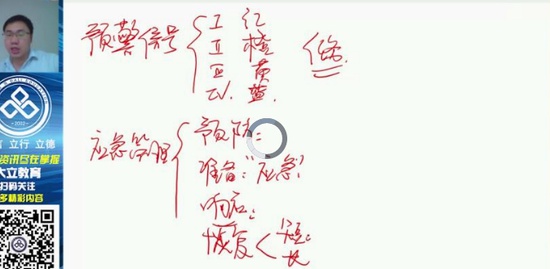 预警信号
I 红
II 橙
III 黄
IV. 蓝.
应急管理
预防:
准备:"应急"
响应:
恢复 < 短:
长
2012
言 立行 立德
资讯尽在掌握
大立教育
扫码关注
多精彩内容